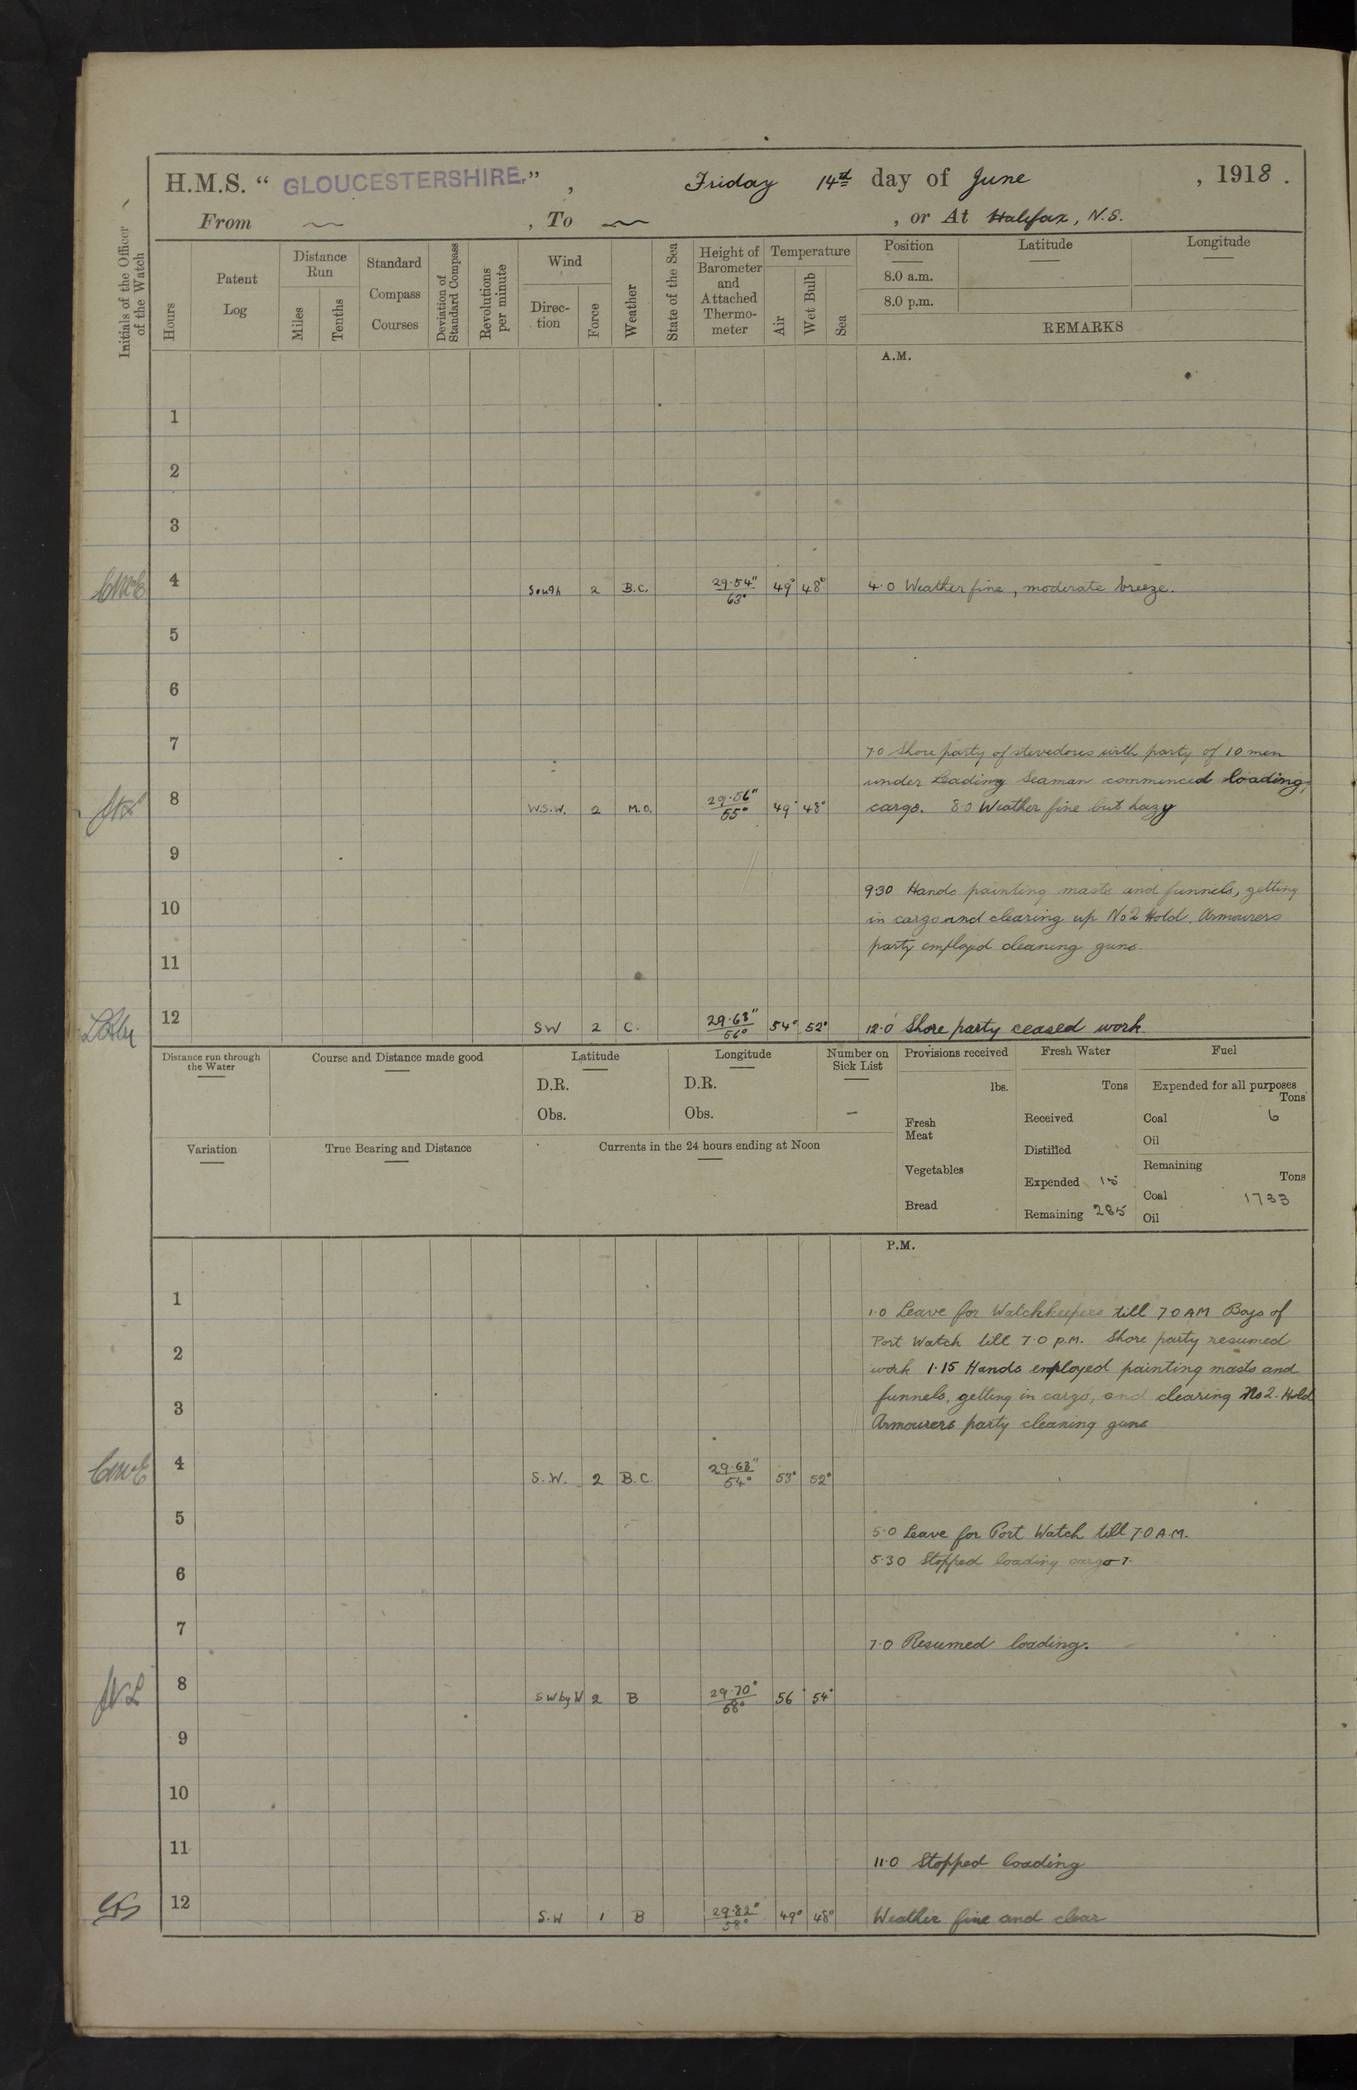 H.M.S. “ GLOUCESTERSHIRE. ” , Friday 14th day of June , 1918 .
From , To , or At Halifax, N.S.
Initials of the Officer of the Watch
Hours
Patent Log
Distance Run
Miles
Tenths
Standard Compass Courses
Deviation of Standard Compass
Revolutions per minute
Wind
Direc-tion
Force
Weather
State of the Sea
Height of Barometer and Attached Thermo-meter
Temperature
Air
Wet Bulb
Sea
Position
8.0 a.m.
8.0 p.m.
Latitude
Longitude
REMARKS
A.M.
1
2
3
4 South 2 B.C. 29.54" 63° 49° 48° 4.0 Weather fine, moderate breeze.
5
6
7 7.0 Shore party of stevedores with party of 10 men
under Leading Seaman commenced loading
8 W.S.W. 2 M.O. 29.56" 55° 49° 48° cargo. 8.0 Weather fine but hazy
9
9.30 Hands painting masts and funnels, getting
10 in cargo and clearing up No 2 Hold. Armourers
party employed cleaning guns.
11
12 SW 2 C. 29.63" 56° 54° 52° 12.0 Shore party ceased work.
Distance run through the Water
Course and Distance made good
Latitude
D.R.
Obs.
Longitude
D.R.
Obs.
Number on Sick List
—
Variation
True Bearing and Distance
Currents in the 24 hours ending at Noon
Provisions received
lbs.
Fresh Meat
Vegetables
Bread
Fresh Water
Tons
Received
Distilled
Expended 15
Remaining 285
Fuel
Expended for all purposes
Tons
Coal 6
Oil
Remaining
Tons
Coal 1733
Oil
P.M.
1 1.0 Leave for Watchkeepers till 7.0 AM Boys of
Port Watch till 7.0 P.M. Shore party resumed
2 work 1.15 Hands employed painting masts and
funnels, getting in cargo, and clearing No 2. Hold
3 Armourers party cleaning guns
4 S.W. 2 B.C. 29.63" 54° 53° 52°
5 5.0 Leave for Port Watch till 7.0 A.M.
5.30 Stopped loading cargo
6
7 7.0 Resumed loading.
8 SW by W 2 B 29.70" 58° 56° 54°
9
10
11 11.0 Stopped loading
12 S.W 1 B 29.82" 58° 49° 48° Weather fine and clear